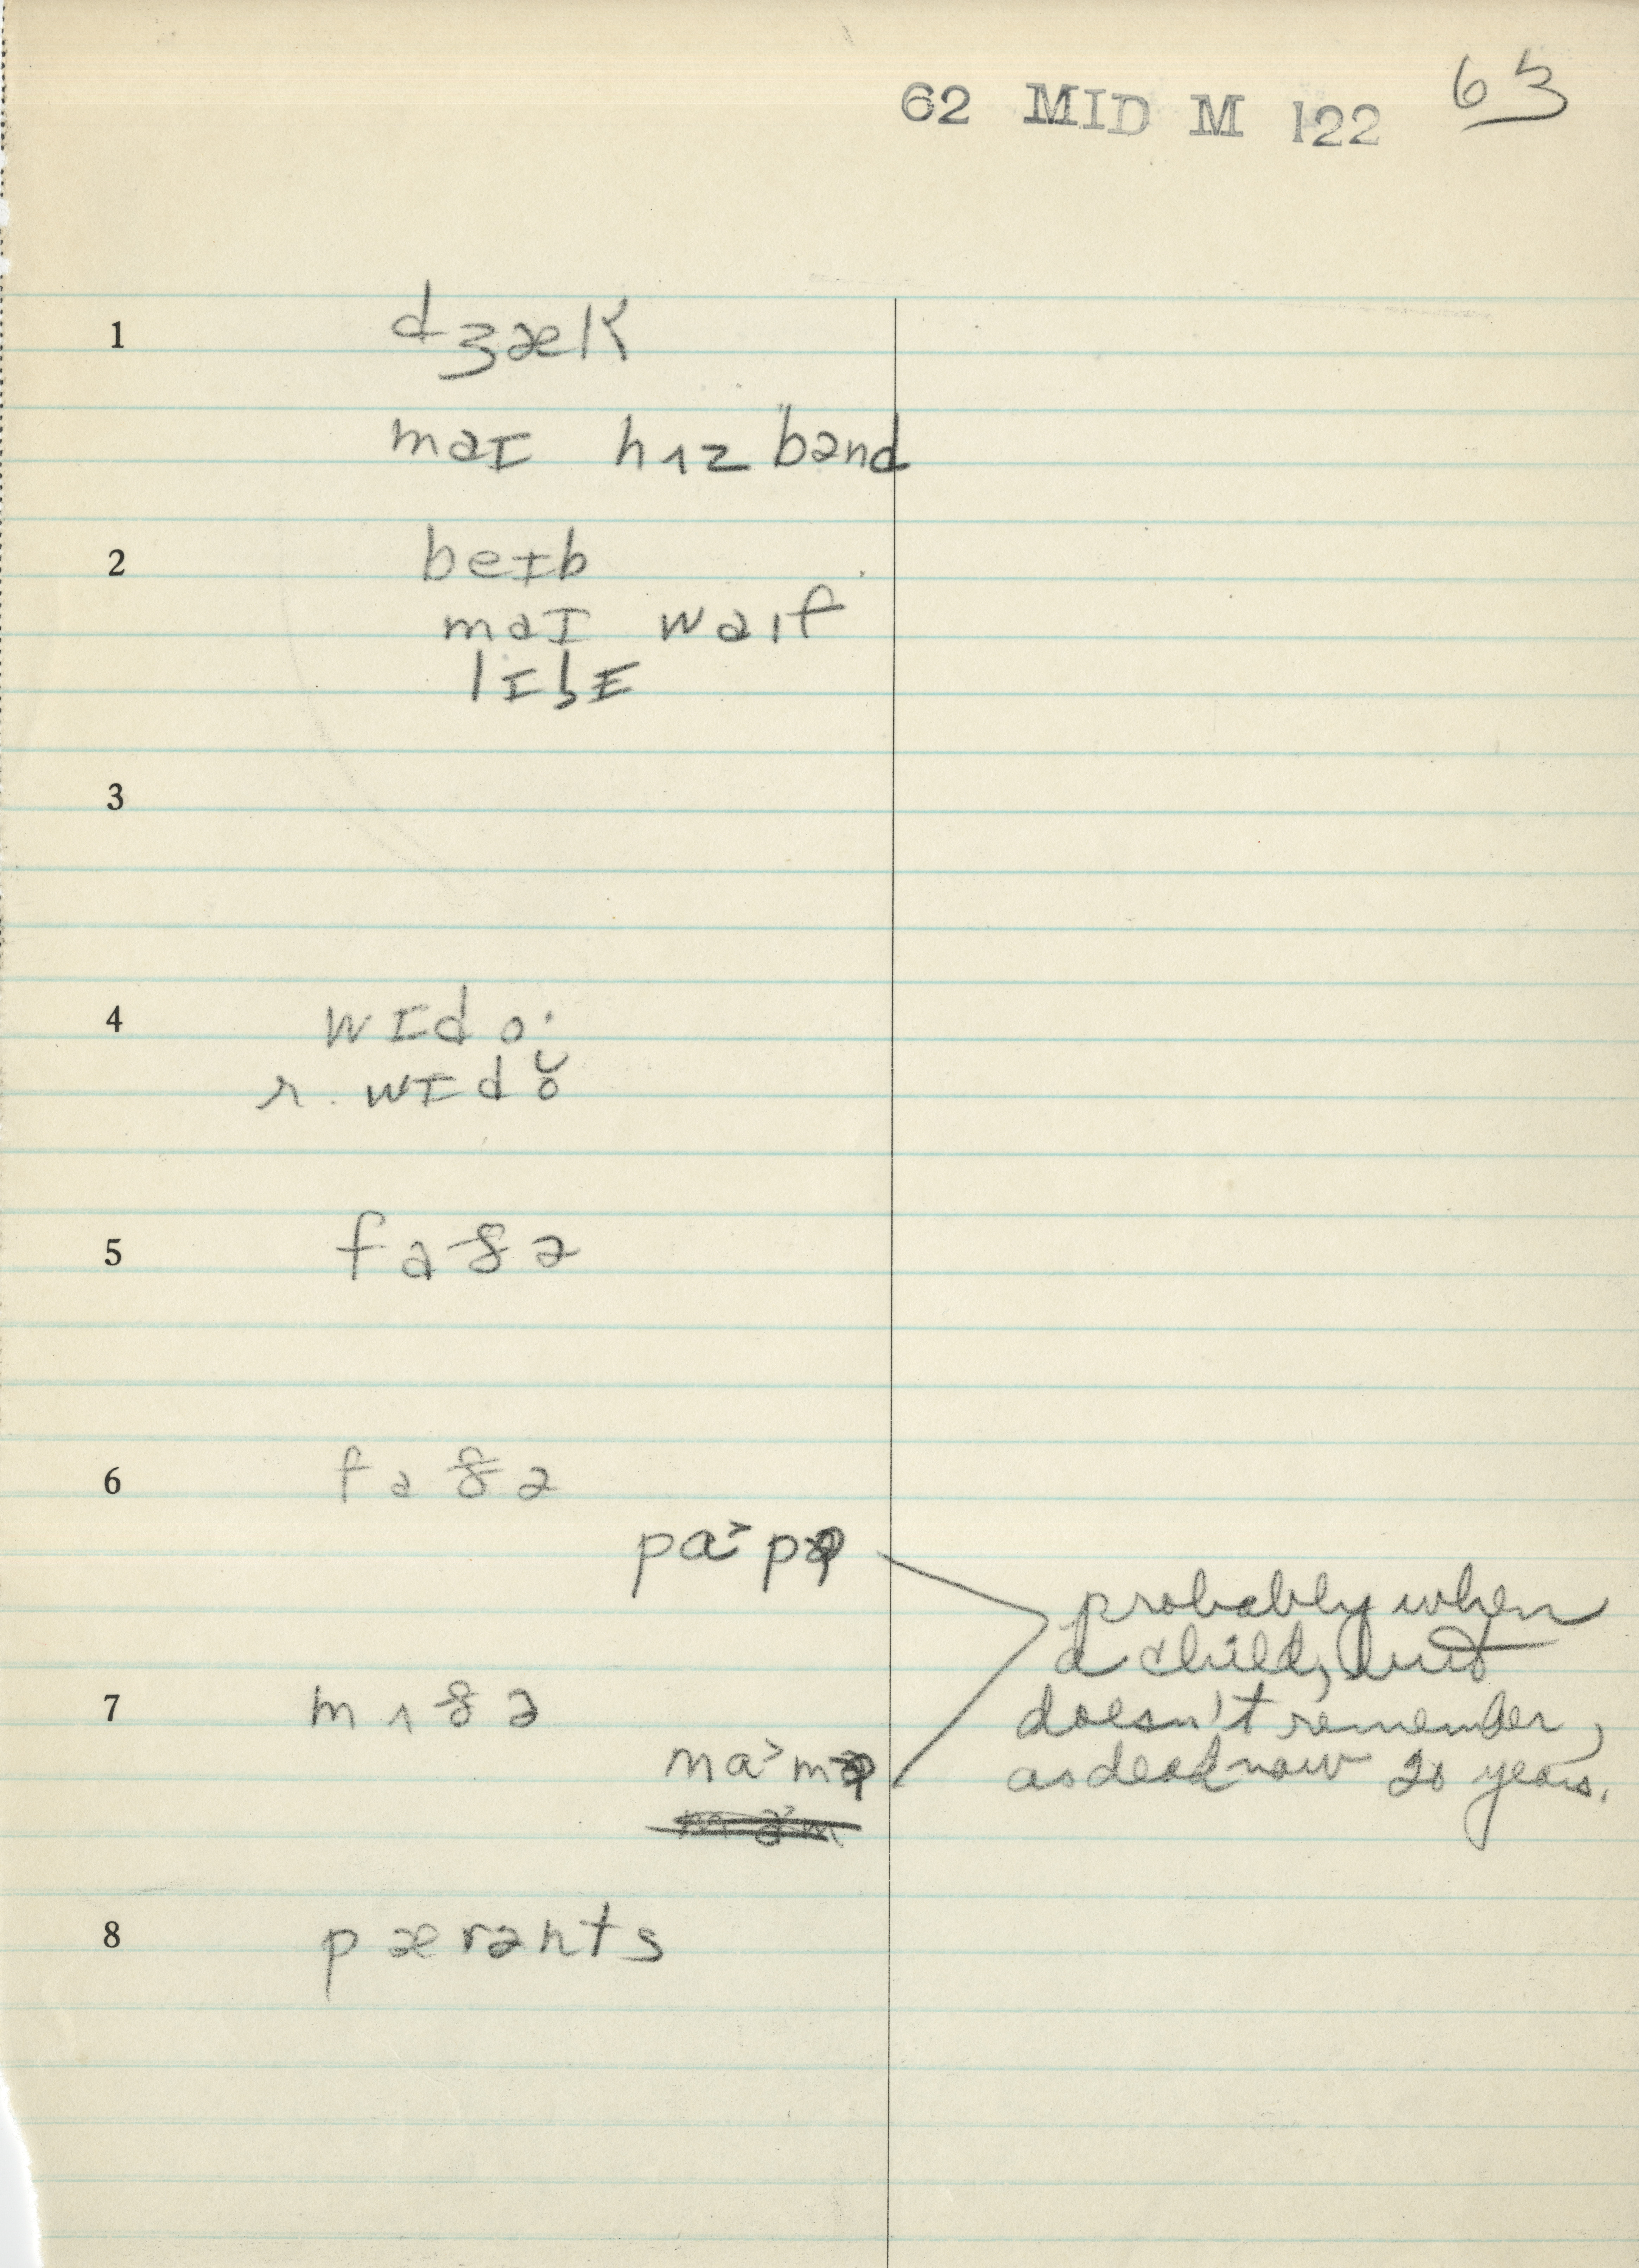 62 MID M 122 63
1 dʒæk
maɪ hʌzbənd
2 beɪb
maɪ waɪf
3
4 wɪdo·
r. wɪdŏ
5 faðə
6 faðə
pa˃pə
probably when
a child, but
7 mʌðə
doesn't remember,
ma˃mə
as dead now 20 years.
8 pærənts